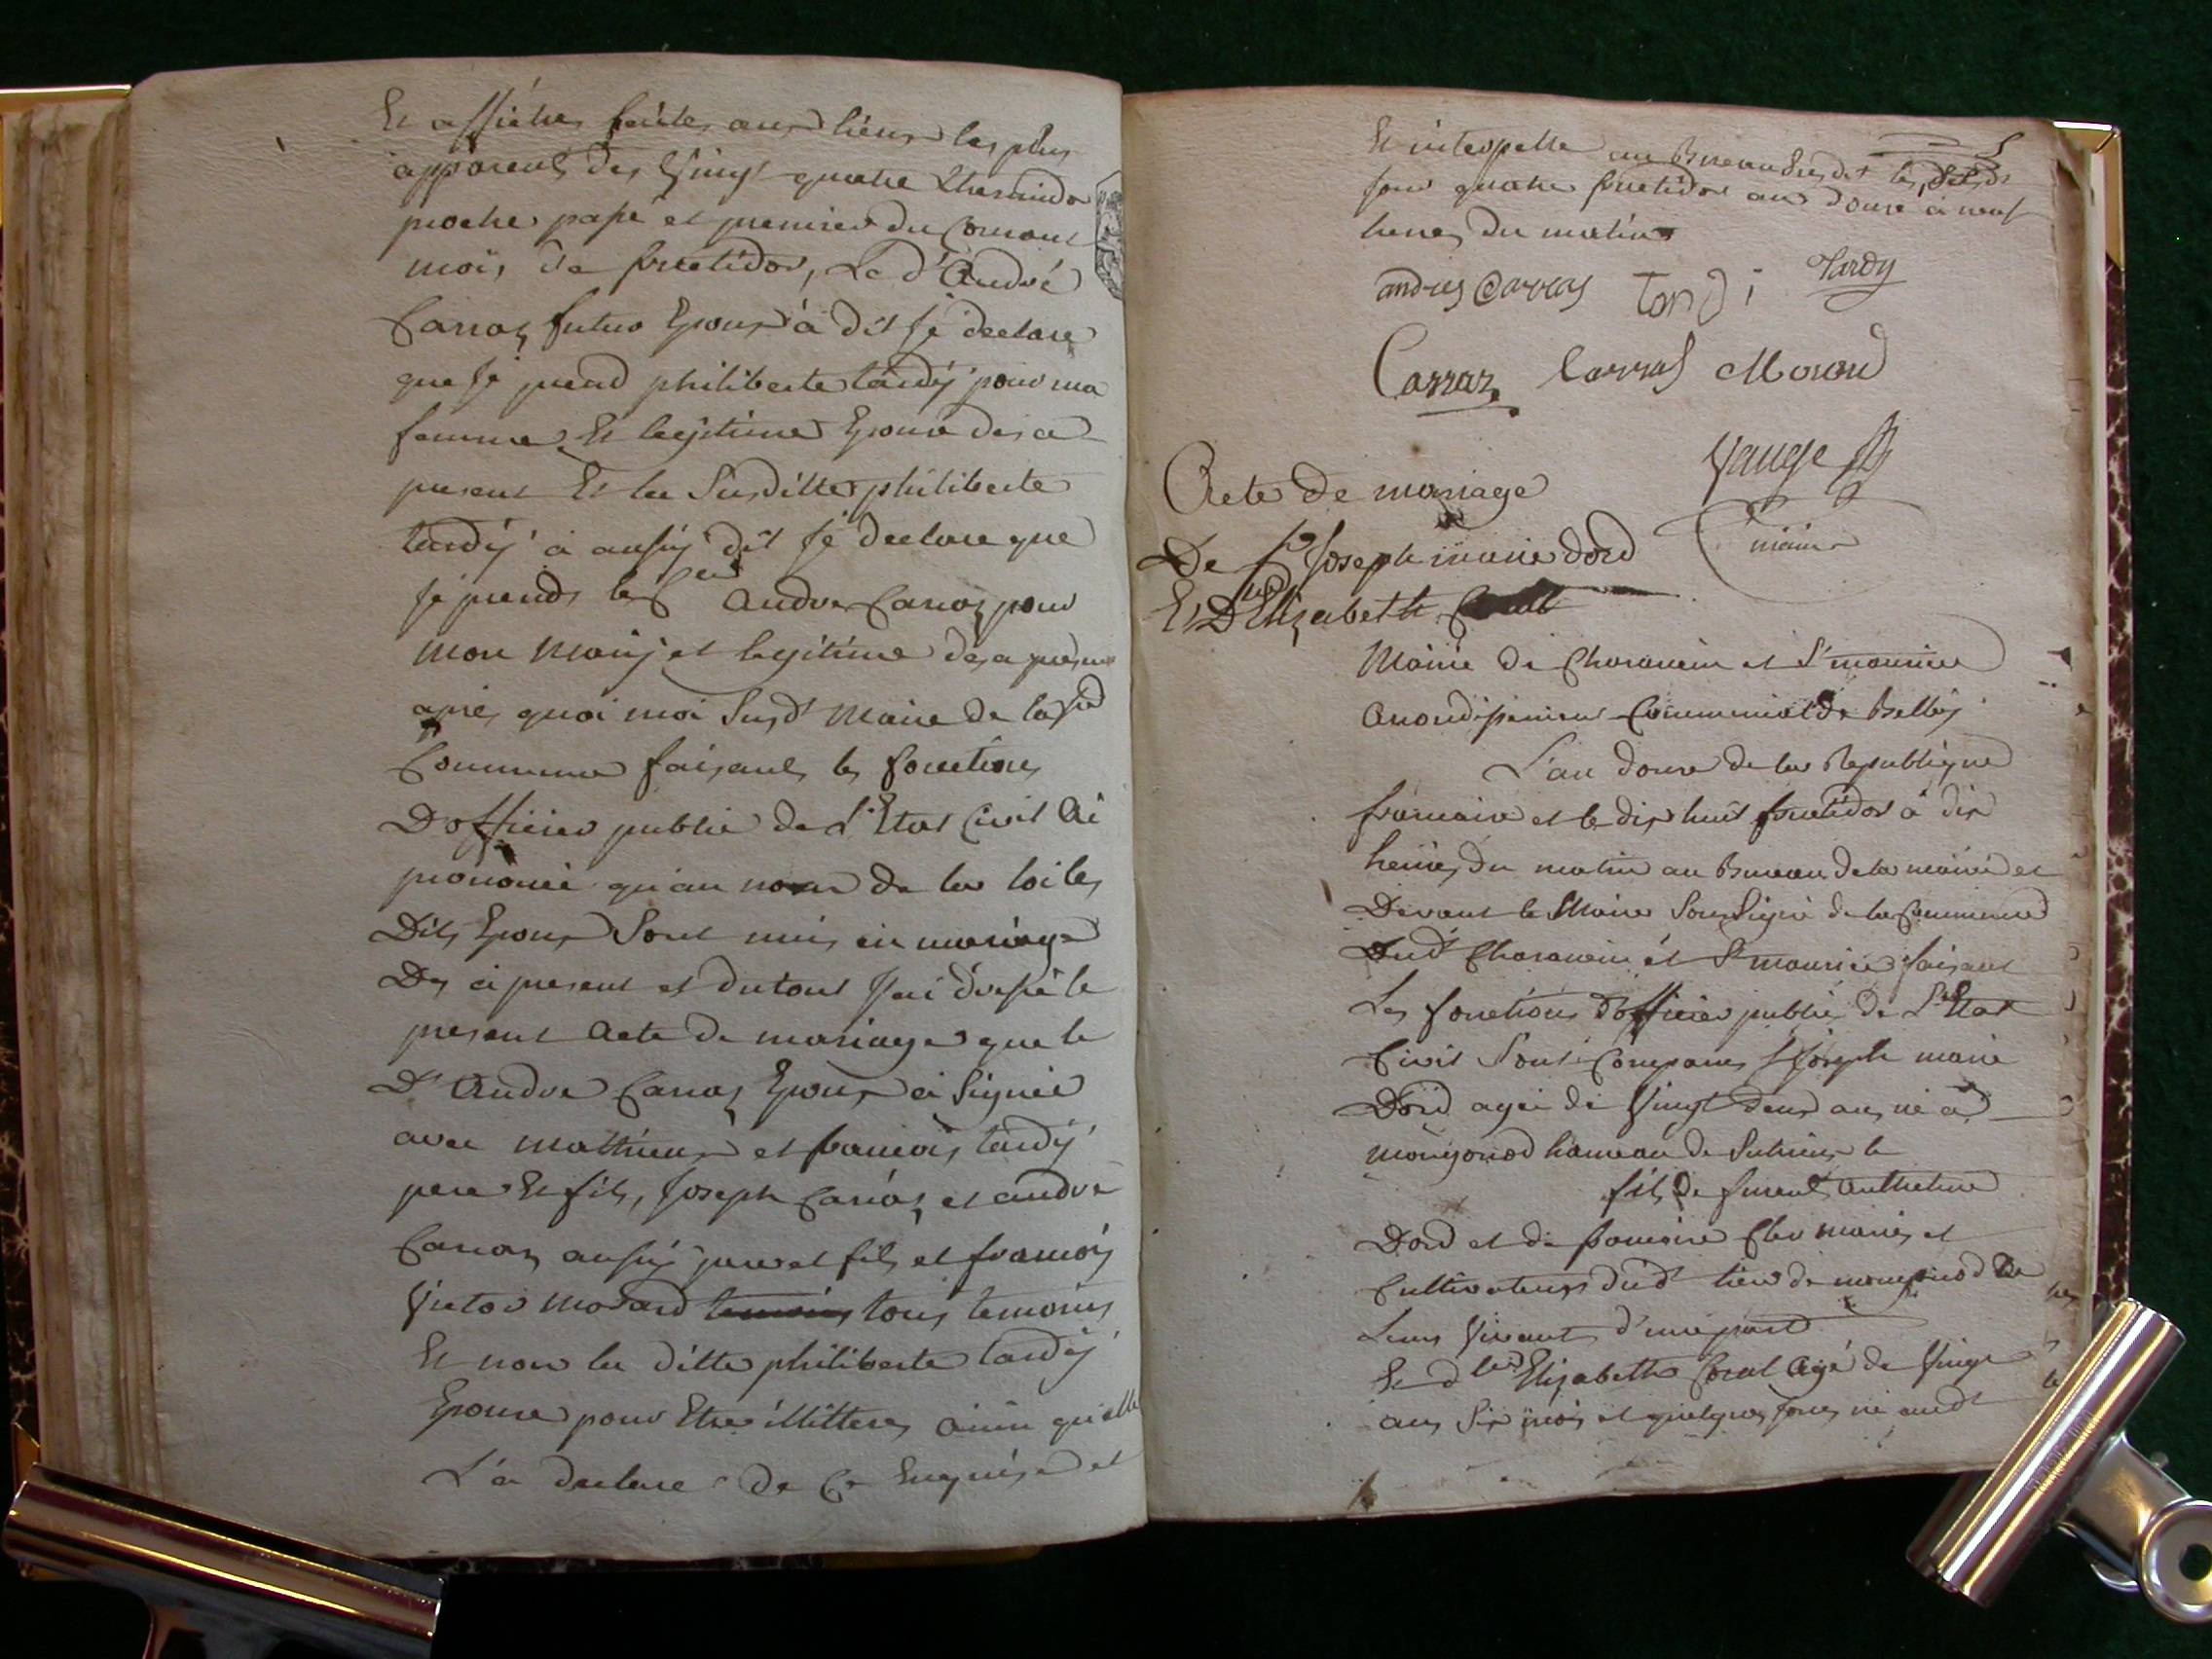 Et affiches faites aux lieux les plus
apparents des Vingt quatre thermidor
proche passé et premier du Courant
mois de fructidor, Le dt André
Carraz futur Epoux à dit je declare
que je prend philiberte tardÿ pour ma
femme Et legitime Epouse des a
present Et la Susditte philiberte
tardÿ à aussÿ dit je declare que
je prends le Sr André Carraz pour
mon Marij et legitime des a present
après quoi moi Susdt Maire de la
Commune faisant les fonctions
D'officier public de L'Etat Civil Ai
prononcé qu'au nom de la loi les
Dits Epoux Sont unis en mariage
Des a present et du tout j'ai dressé le
present Acte de mariage que le
Dt André Carraz Epoux à Signé
avec Mathieux et francois tardÿ
pere Et fils, joseph Carraz et andré
Carraz aussÿ pere et fils et francois
Victor Morard temoins tous temoins
Et non la ditte philiberte tardÿ
Epouse pour Etre illittere, ainsi qu'elle
L'a declare de Ce Enquise et
Et interpelle au Bureau susdt les dits
jour quatre fructidor an douze à neuf
heures du matin
andres Carras tardi tardy
Carraz Carras Morard
Vauge
maire
Acte de mariage
De Sr Joseph marie dord
Et Dlle Elizabeth
Mairie de Charancin et St maurice
Arrondissement Communal de Belleÿ
L'an douze de la Republique
francaise et le dix huit fructidor à dix
heures du matin au Bureau de la mairie et
Devant le Maire Soussigné de la Commune
Dudt Charancin et St maurice faisant
Les fonctions d'officier public de L'Etat
Civil Sont Comparus Sr Joseph marie
Dord agé de Vingt deux ans né à
hameau de Sutrieux le
fils de Anthelme
Dord et de francoise mariés et
Cultivateurs dudt lieu de
Leurs Vivants d'une part
Et dlle Elizabeth Agé de Vingt
ans Six mois et quelques jours né audt